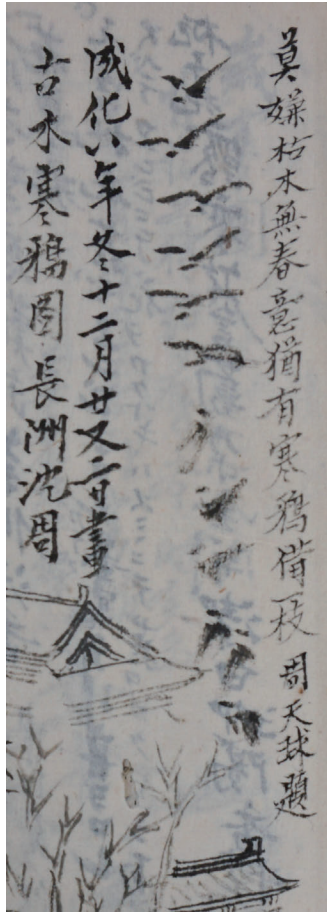 莫嫌枯木無春意猶有寒鴉借一枝 周天球題
成化八年冬十二月廿又二日畫
古木寒鴉圖長洲沈周